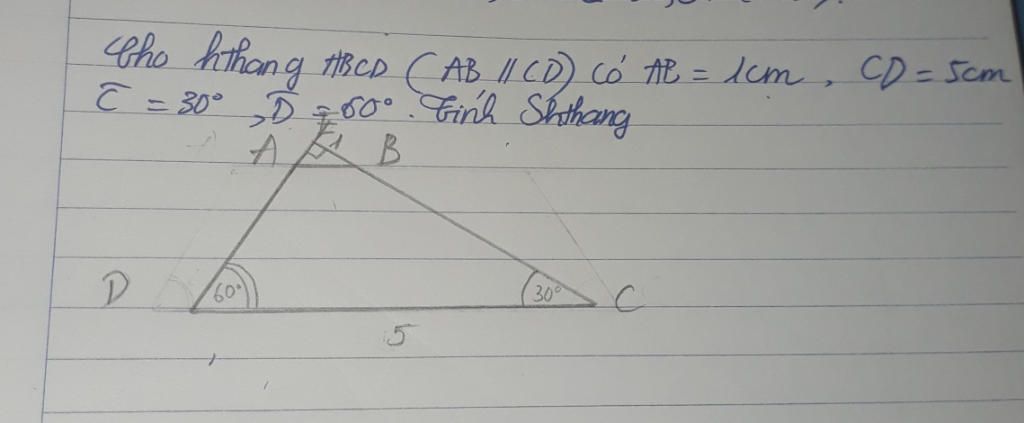 Cho hthang ABCD (AB // CD) có AB = 1cm, CD = 5cm
C = 30°, D = 60°. Tính Shthang
E
A 1 B
D 60° 30° C
5